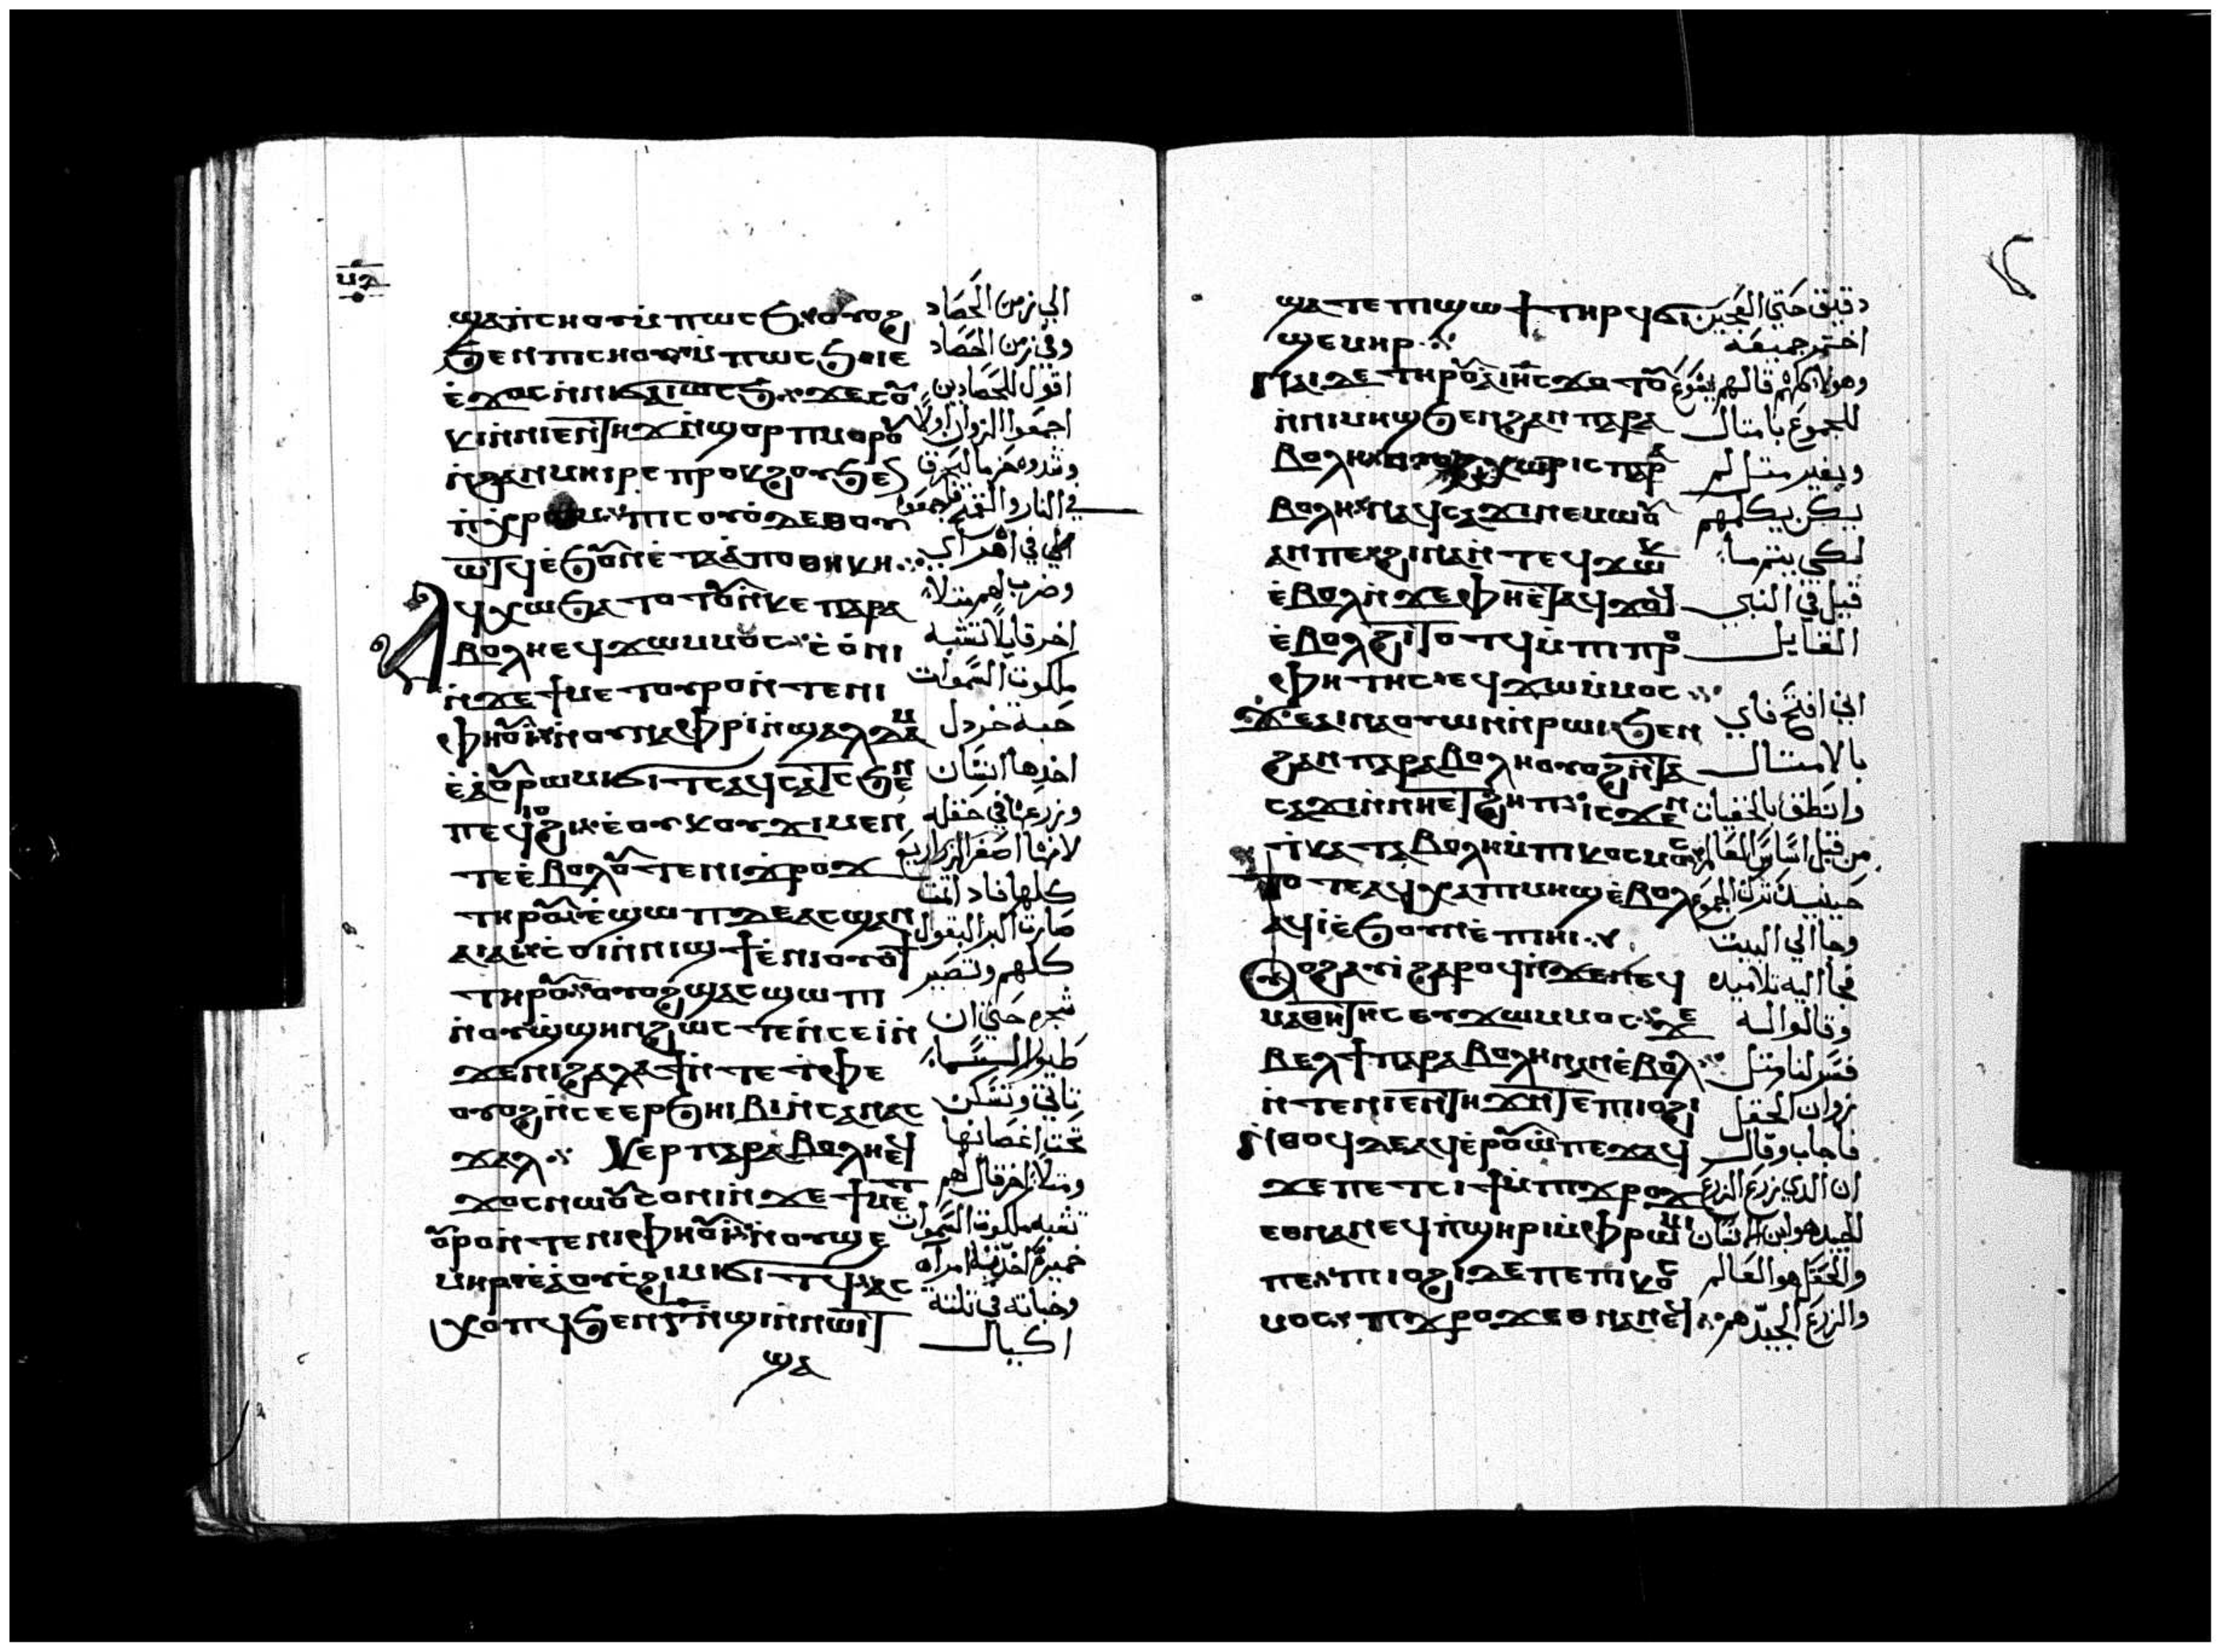 ⲛⲁ
ϣⲁⲡⲥⲏⲟⲩⲙ̀ⲡⲱⲥϧ ⲟⲩⲟϩ
ϧⲉⲛⲡⲥⲏⲟⲩⲙ̀ⲡⲱⲥϧⲉⲓⲉ
ⲉ̀ϫⲟⲥⲛ̀ⲛⲓϭⲁⲓⲱⲥϧ ϫⲉⲥⲟⲩ
ⲕⲓⲛ̀ⲛⲓⲉⲛⲧⲏϫⲛ̀ϣⲟⲣⲡⲙⲟⲣⲟⲩ
ⲛ̀ϩⲁⲛⲙⲏⲓⲣⲉ ⲡⲣⲟⲕϩⲟⲩϧⲉ
ⲡⲓⲥⲟⲩⲟ̀ⲇⲉⲑⲟⲩ
ⲱⲧϥⲉ̀ϧⲟⲩⲛⲉ̀ⲧⲁⲁ̀ⲡⲟⲑⲏⲕⲏ
ⲁϥⲭⲱϧⲁⲧⲟⲧⲟⲩⲛ̀ⲕⲉⲡⲁⲣⲁ
ⲃⲟⲗⲏⲉϥϫⲱⲙⲙⲟⲥ ⲥⲟ̀ⲛⲓ
ⲛ̀ϫⲉϯⲙⲉⲧⲟⲩⲣⲟⲛ̀ⲧⲉⲛⲓ
ⲫⲏⲟⲩⲓ̀ⲛ̀ⲟⲩⲛⲁⲫⲣⲓⲛ̀ϣⲁⲗⲧⲁⲙ
ⲉ̀ⲁⲟⲩⲣⲱⲙⲓϭⲓⲧⲥⲁϥⲥⲁⲧⲥϧⲉⲛ
ⲡⲉϥⲓⲟϩⲓ ⲉ̀ⲟⲩⲕⲟⲩϫⲓⲙⲉⲛ
ⲧⲉⲉ̀ⲃⲟⲗⲟⲩⲧⲉⲛⲓϫⲣⲟϫ
ⲧⲏⲣⲟⲩ ⲉ̀ϣⲱⲡⲇⲉⲁⲥϣⲁⲛ
ⲁⲓⲁⲓ ⲥⲟⲓⲛ̀ⲛⲓϣϯⲉ̀ⲛⲓⲟⲩⲟϯ
ⲧⲏⲣⲟⲩ ⲟⲩⲟϩϣⲁⲥϣⲱⲡⲓ
ⲛ̀ⲟⲩϣ̀ϣⲏⲛϩⲱⲥⲧⲉⲛ̀ⲥⲉⲓ̀ⲛ̀
ϫⲉⲛⲓϩⲁⲗⲁϯⲛ̀ⲧⲉⲧ̀ⲫⲉ
ⲟⲩⲟϩⲛ̀ⲥⲉⲉⲣϧⲏⲓⲃⲓⲛ̀ⲥⲁⲛⲁⲥ
ϫⲁⲗ ⲕⲉⲣⲡⲁⲣⲁⲃⲟⲗⲏⲉϥ
ϫⲟⲥⲛⲱⲟⲩⲥⲟⲛⲓⲛ̀ϫⲉϯⲙⲉⲧ
ⲟⲩⲣⲟⲛ̀ⲧⲉⲛⲓⲫⲏⲟⲩⲓ̀ⲛ̀ⲟⲩϣⲉ
ⲙⲏⲣ ⲉ̀ⲁⲟⲩⲥϩⲓⲙⲓϭⲓⲧϥ ⲁⲥ
ⲭⲟⲡϥϧⲉⲛⲅ̅ⲛ̀ϣⲓⲛ̀ⲛⲱⲓⲧ
ϣⲁ
الى زمن الحصاد
وفي زمن الحصاد
اقول للحصادين
اجمعوا الزوان اولا
وشدوه حزما ليحرق
في النار والقمح فاجمعوا
الى في اهراي
وضرب لهم مثلا
اخر قايلا تشبه
ملكوت السموات
حبة خردل
اخدها انسان
وزرعها في حقله
لانها اصغر الزراريع
كلها فاذا نمت
صارت اكبر البقول
كلهم وتصير
شجره حتى ان
طيور السماء
تاتي وتسكن
تحت اغصانها
ومثلا اخر قال لهم
تشبه ملكوت السموات
خميره اخدته امراه
وخباته في تلتة
اكيال
ϣⲁⲧⲉⲡⲓϣⲱϯⲧⲏⲣϥϭⲓ
ϣⲉⲙⲏⲣ
ⲛⲁⲓⲇⲉⲧⲏⲣⲟⲩⲁⲓⲏ̅ⲥ̅ϫⲟⲧⲟⲩ
ⲛ̀ⲛⲓⲙⲏϣϧⲉⲛϩⲁⲛⲡⲁⲣⲁ
ⲃⲟⲗⲏ ⲟⲩⲟϩⲭⲱⲣⲓⲥⲡⲁⲣⲁ
ⲃⲟⲗⲏ ⲛⲁϥⲥⲁϫⲓⲛⲉⲙⲱⲟⲩ
ⲁⲛⲡⲉ ϩⲓⲛⲁⲛ̀ⲧⲉϥϫⲱⲕ
ⲉ̀ⲃⲟⲗⲛ̀ϫⲉⲫⲏⲉ̀ⲧⲁϥϫⲟϥ
ⲉ̀ⲃⲟⲗϩⲓⲧⲟⲧϥⲙ̀ⲡⲓⲡⲣⲟ
ⲫⲏⲧⲏⲥ ⲉϥϫⲱⲙ̀ⲙⲟⲥ
ϫⲉⲁⲓⲛⲁⲟⲩⲱⲛⲛ̀ⲣⲱⲓϧⲉⲛ
ϩⲁⲛⲡⲁⲣⲁⲃⲟⲗⲏⲟⲩⲟϩⲛ̀ⲧⲁ
ⲥⲁϫⲓⲛ̀ⲛⲏⲉⲧϩⲏⲡ ⲓⲥϫⲉⲛ
ⲧ̀ⲕⲁⲧⲁⲃⲟⲗⲏⲙ̀ⲡⲓⲕⲟⲥⲙⲟⲥ
ⲧⲟⲧⲉⲁϥⲭⲁⲡⲓⲙⲏϣⲉ̀ⲃⲟⲗ
ⲁϥⲓ̀ⲉ̀ϧⲟⲩⲛⲉ̀ⲡⲓⲏⲓ
ⲟⲩⲟϩⲁⲩⲓ̀ϩⲁⲣⲟϥⲛ̀ϫⲉⲛⲉϥ
ⲙⲁⲑⲏⲧⲏⲥⲉⲩϫⲱⲙⲙⲟⲥ ϫⲉ
ⲃⲉⲗϯⲡⲁⲣⲁⲃⲟⲗⲏⲛⲁⲛⲉ̀ⲃⲟⲗ
ⲛ̀ⲧⲉⲛⲓⲉⲛⲧⲏϫⲛ̀ⲧⲉⲡⲓⲟϩⲓ
ⲛ̀ⲑⲟϥⲇⲉⲁϥⲉ̀ⲣⲟⲩⲱ̀ⲡⲉϫⲁϥ
ϫⲉⲡⲉⲧⲥⲓϯⲙ̀ⲡⲓϫⲣⲟϫ
ⲉⲑⲛⲁⲛⲉϥⲡ̀ϣⲏⲣⲓⲙ̀ⲫⲣⲱⲙⲓ
ⲡⲉ ⲡⲓⲟϩⲓⲇⲉⲡⲉⲡⲓⲕⲟⲥ
ⲙⲟⲥ ⲡⲓϫⲣⲟϫⲉⲑⲛⲁⲛⲉϥ
دقيق حتى العجين
اختمر جميعه
وهولا كلهم قالهم يشوع
للجموع بامتال
وبغير متل لم
يكن يكلمهم
لكي يتم ما
قيل في النبي
القايل
اني افتح فاي
بالامتال
وانطق بالخفيات
من قبل اساس العالم
حينيد ترك الجموع
وجا الي البيت
فجا اليه تلاميده
وقالوا له
فسر لنا متل
زوان الحقل
فاجاب وقال
ان الدي يزرع الزرع
الجيد هو ابن الانسان
والحقل هو العالم
والزرع الجيد هم